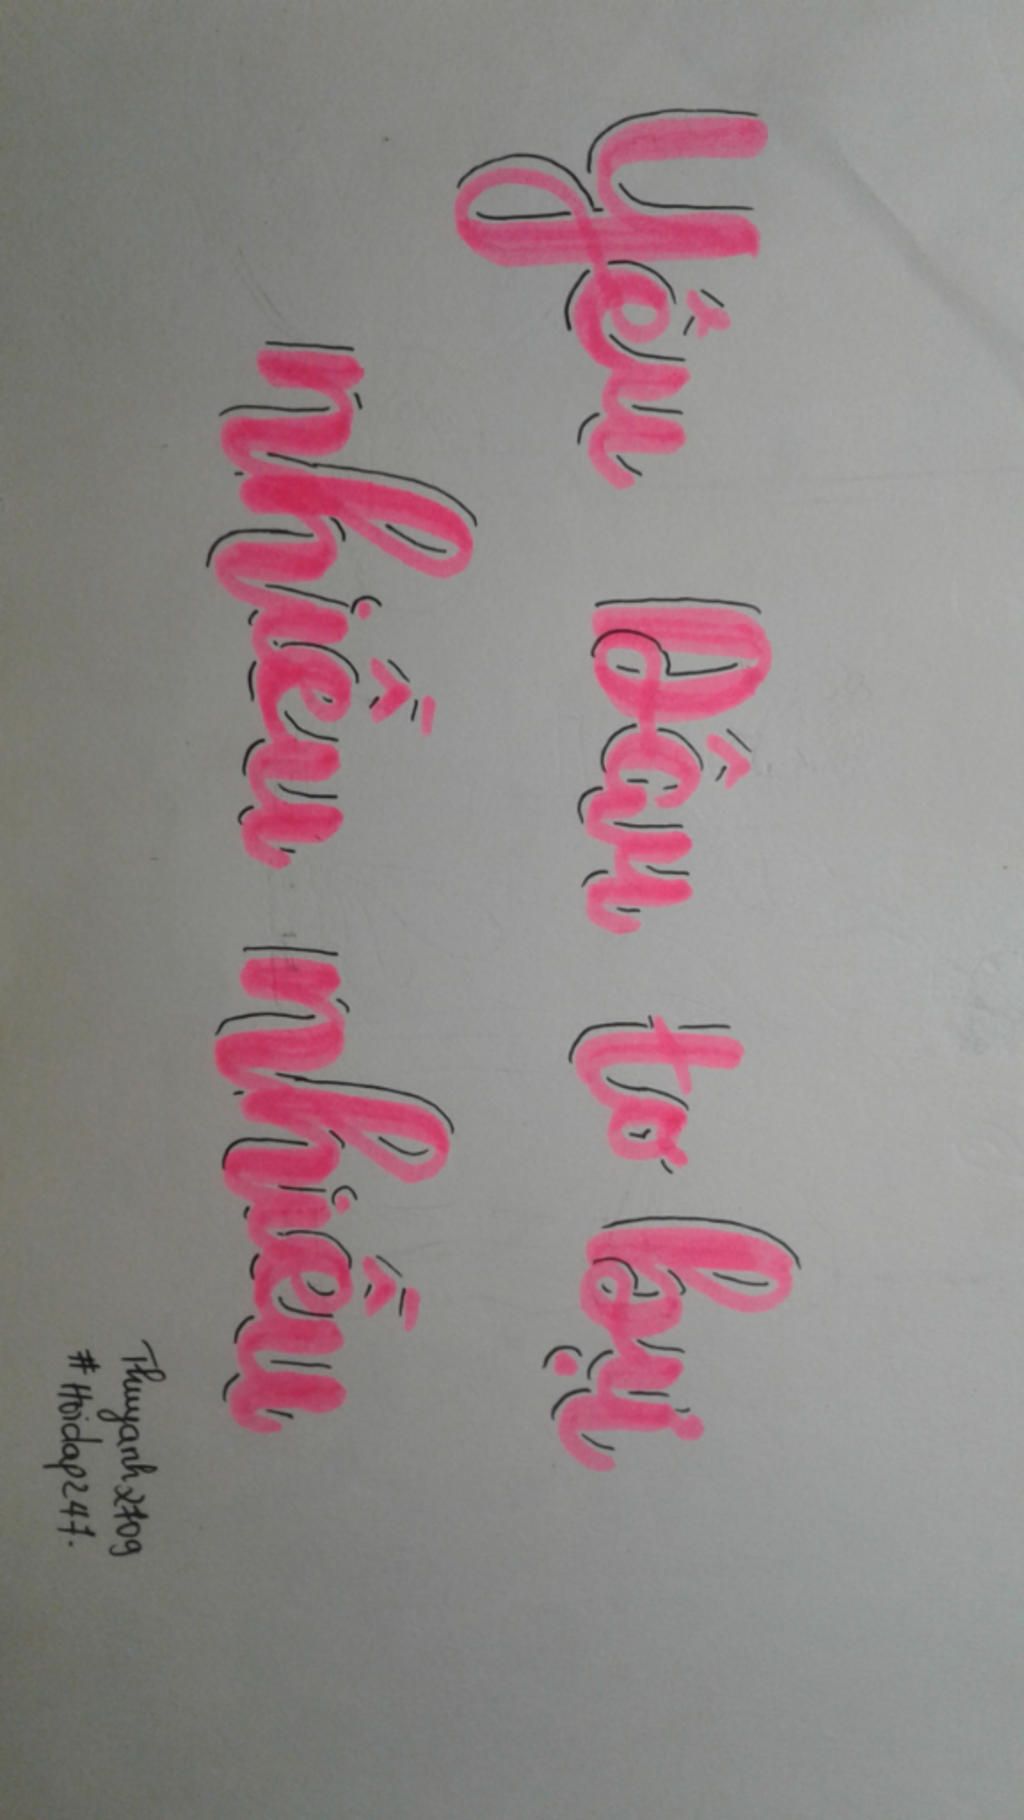 Yêu Dâu tơ bự
nhiều nhiều
Thuyanh2709
#Hoidap247.